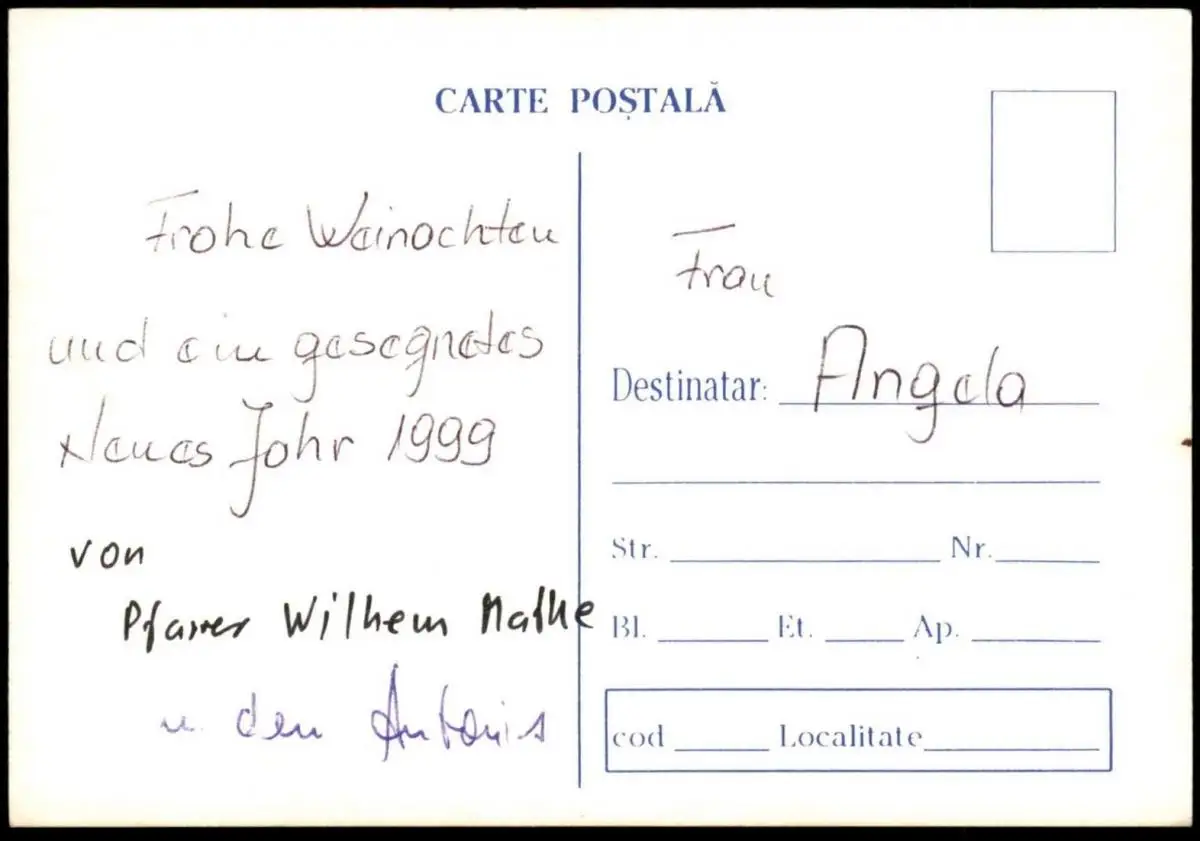 CARTE POȘTALĂ
Frohe Weinachten
und ein gesegnetes
Neues Jahr 1999
von
Pfarrer Wilhem
u. den Antonis
Frau
Destinatar: Angela
Str. Nr.
Bl. Et. Ap.
cod Localitate